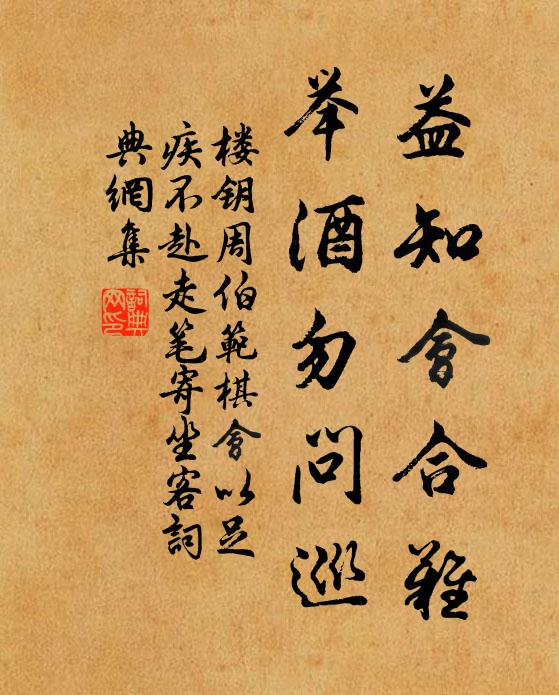 益知會合難
举酒勿問巡
楼钥周伯範棋會以足
疾不赴走笔寄坐客詞
典網集
詞典
网印